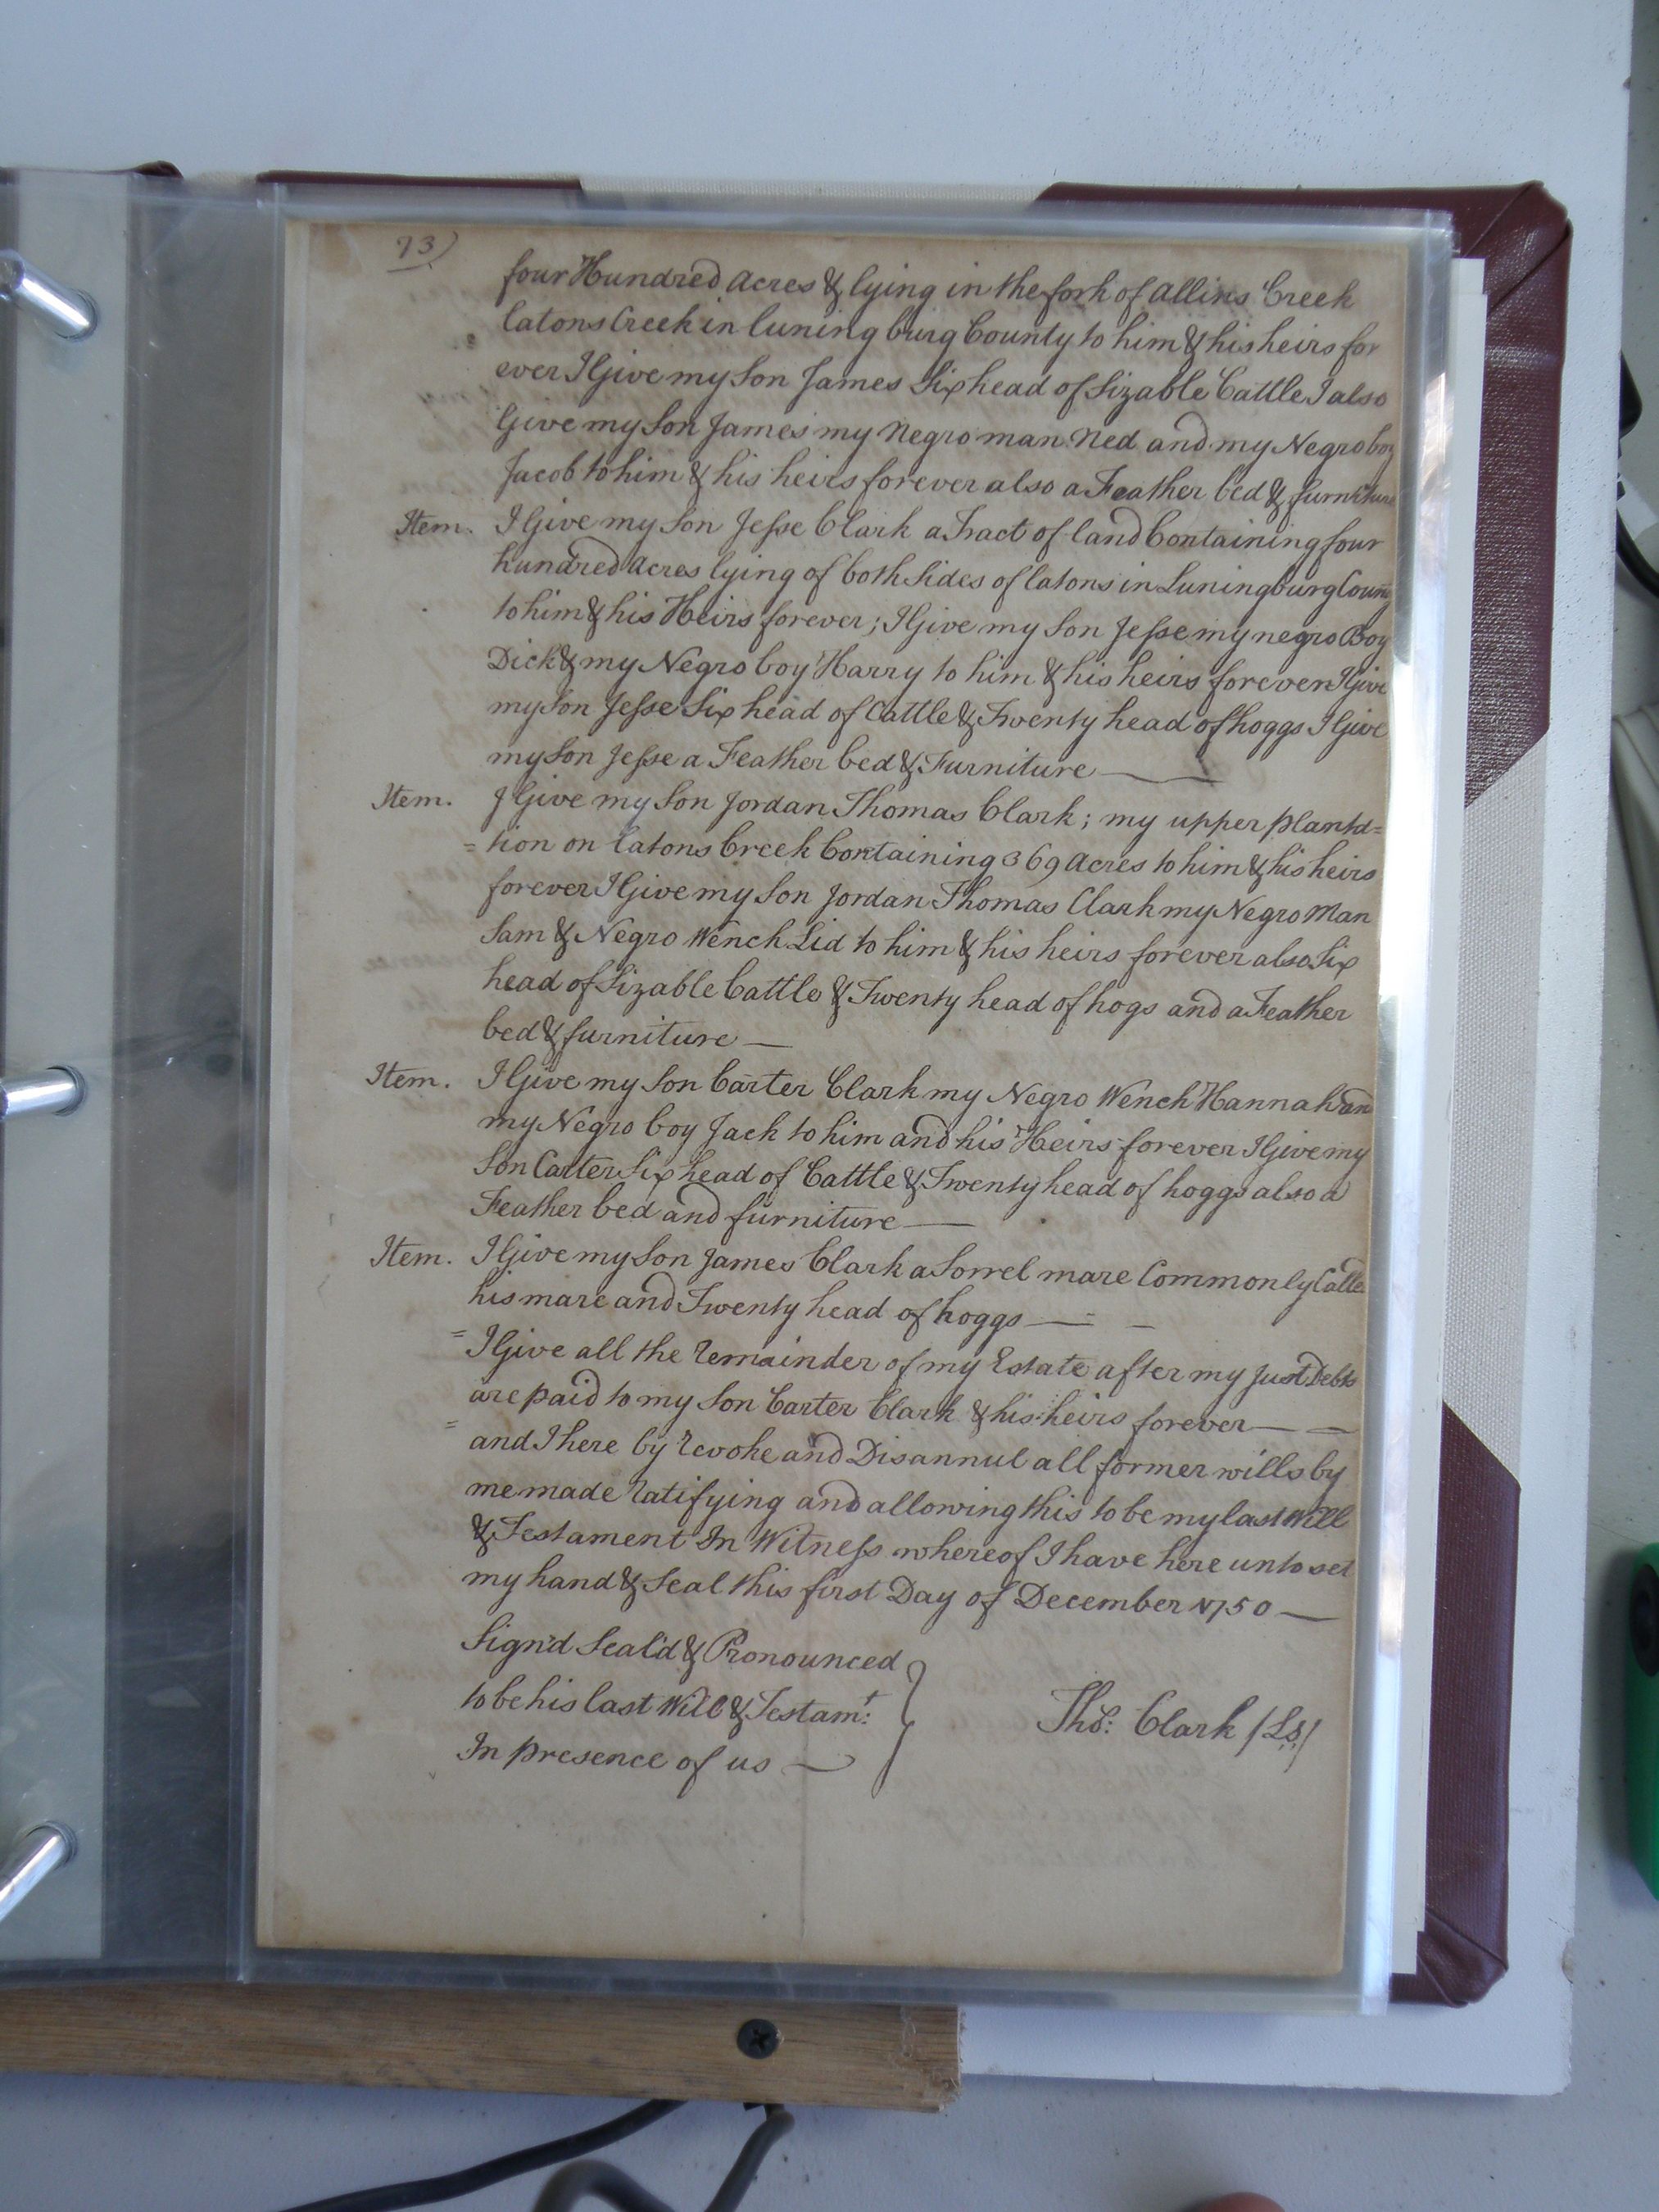 73)
four Hundred acres & lying in the fork of Allins Creek
Catons Creek in luning burg County to him & his heirs for
ever I Give my Son James Six head of Sizable Cattle I also
Give my Son James my Negro man Ned and my Negro boy
Jacob to him & his heirs forever also a Feather bed & furniture
Item. I Give my Son Jesse Clark a Tract of land Containing four
hundred acres lying of both Sides of Catons in Luningburg Coun
to him & his Heirs forever; I Give my Son Jesse my negro Boy
Dick & my Negro boy Harry to him & his heirs forever I Give
my Son Jesse Six head of Cattle & Twenty head of hoggs I Give
my Son Jesse a Feather bed & Furniture
Item. I Give my Son Jordan Thomas Clark; my upper planta=
=tion on Catons Creek Containing 369 acres to him & his heirs
forever I Give my Son Jordan Thomas Clark my Negro Man
Sam & Negro Wench Lid to him & his heirs forever also Six
head of Sizable Cattle & Twenty head of hogs and a Feather
bed & furniture —
Item. I Give my Son Carter Clark my Negro Wench Hannah and
my Negro boy Jack to him and his Heirs forever I Give my
Son Carter Six head of Cattle & Twenty head of hoggs also a
Feather bed and furniture —
Item. I Give my Son James Clark a Sorrel mare Commonly Calle
his mare and Twenty head of hoggs —
= I Give all the remainder of my Estate after my Just Debts
are paid to my Son Carter Clark & his heirs forever —
= and I here by revoke and Disannul all former wills by
me made ratifying and allowing this to be my last Will
& Testament In Witness whereof I have here unto set
my hand & Seal this first Day of December 1750 —
Sign'd Seal'd & Pronounced
to be his last Will & Testamt:
In presence of us —
Thos: Clark (Ls)